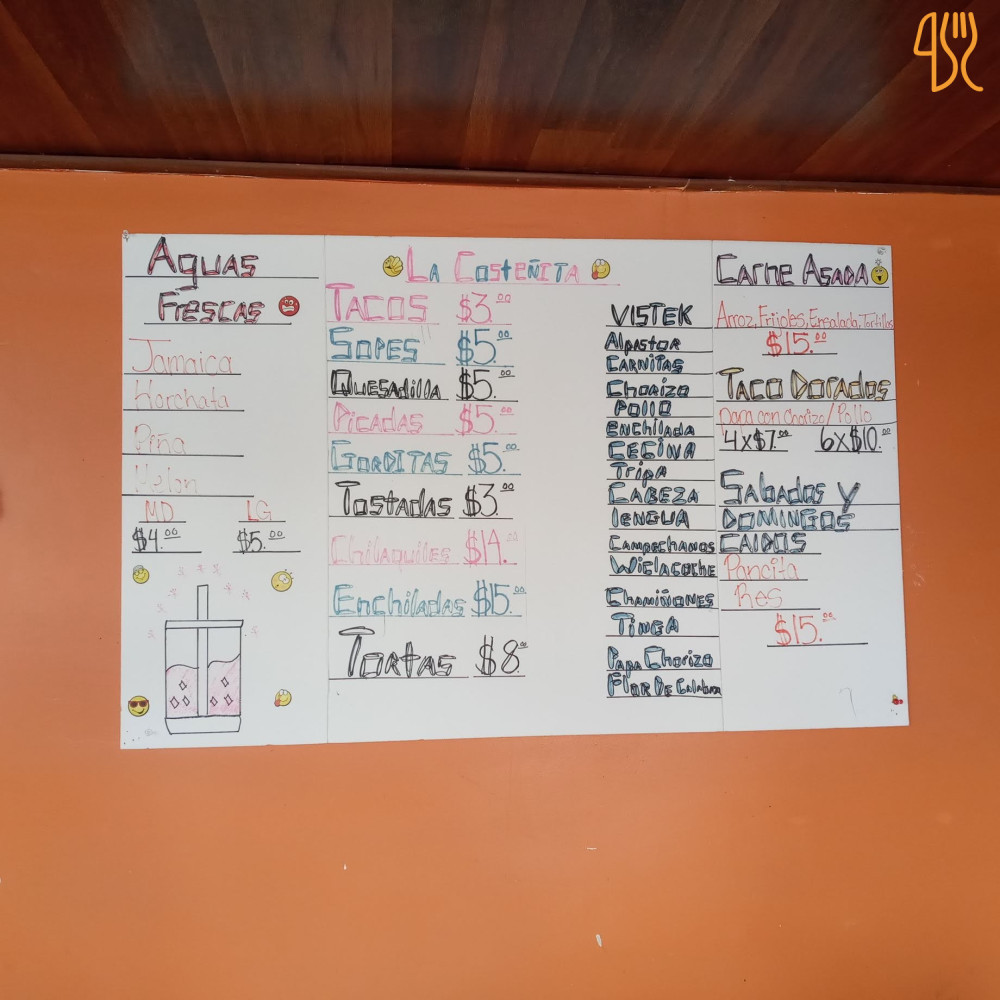 Aguas
Frescas
Jamaica
Horchata
Piña
Melon
MD LG
$4.00 $5.00
La Costeñita
Tacos $3.00
Sopes $5.00
Quesadilla $5.00
Picadas $5.00
Gorditas $5.00
Tostadas $3.00
Chilaquiles $14.00
Enchiladas $15.00
Tortas $8.00
VISTEK
Alpastor
Carnitas
Chorizo
Pollo
Enchilada
CECINA
Tripa
CABEZA
lENGUA
Campechanos
Wiclacoche
Chamiñones
Tinga
Papa Chorizo
Flor De Calabaza
Carne Asada
Arroz, Frijoles, Ensalada, Tortillas
$15.00
Taco Dorados
Papa con Chorizo/Pollo
4x$7.00 6x$10.00
Sabados y
DOMINGOS
CALDOS
Pancita
Res
$15.00